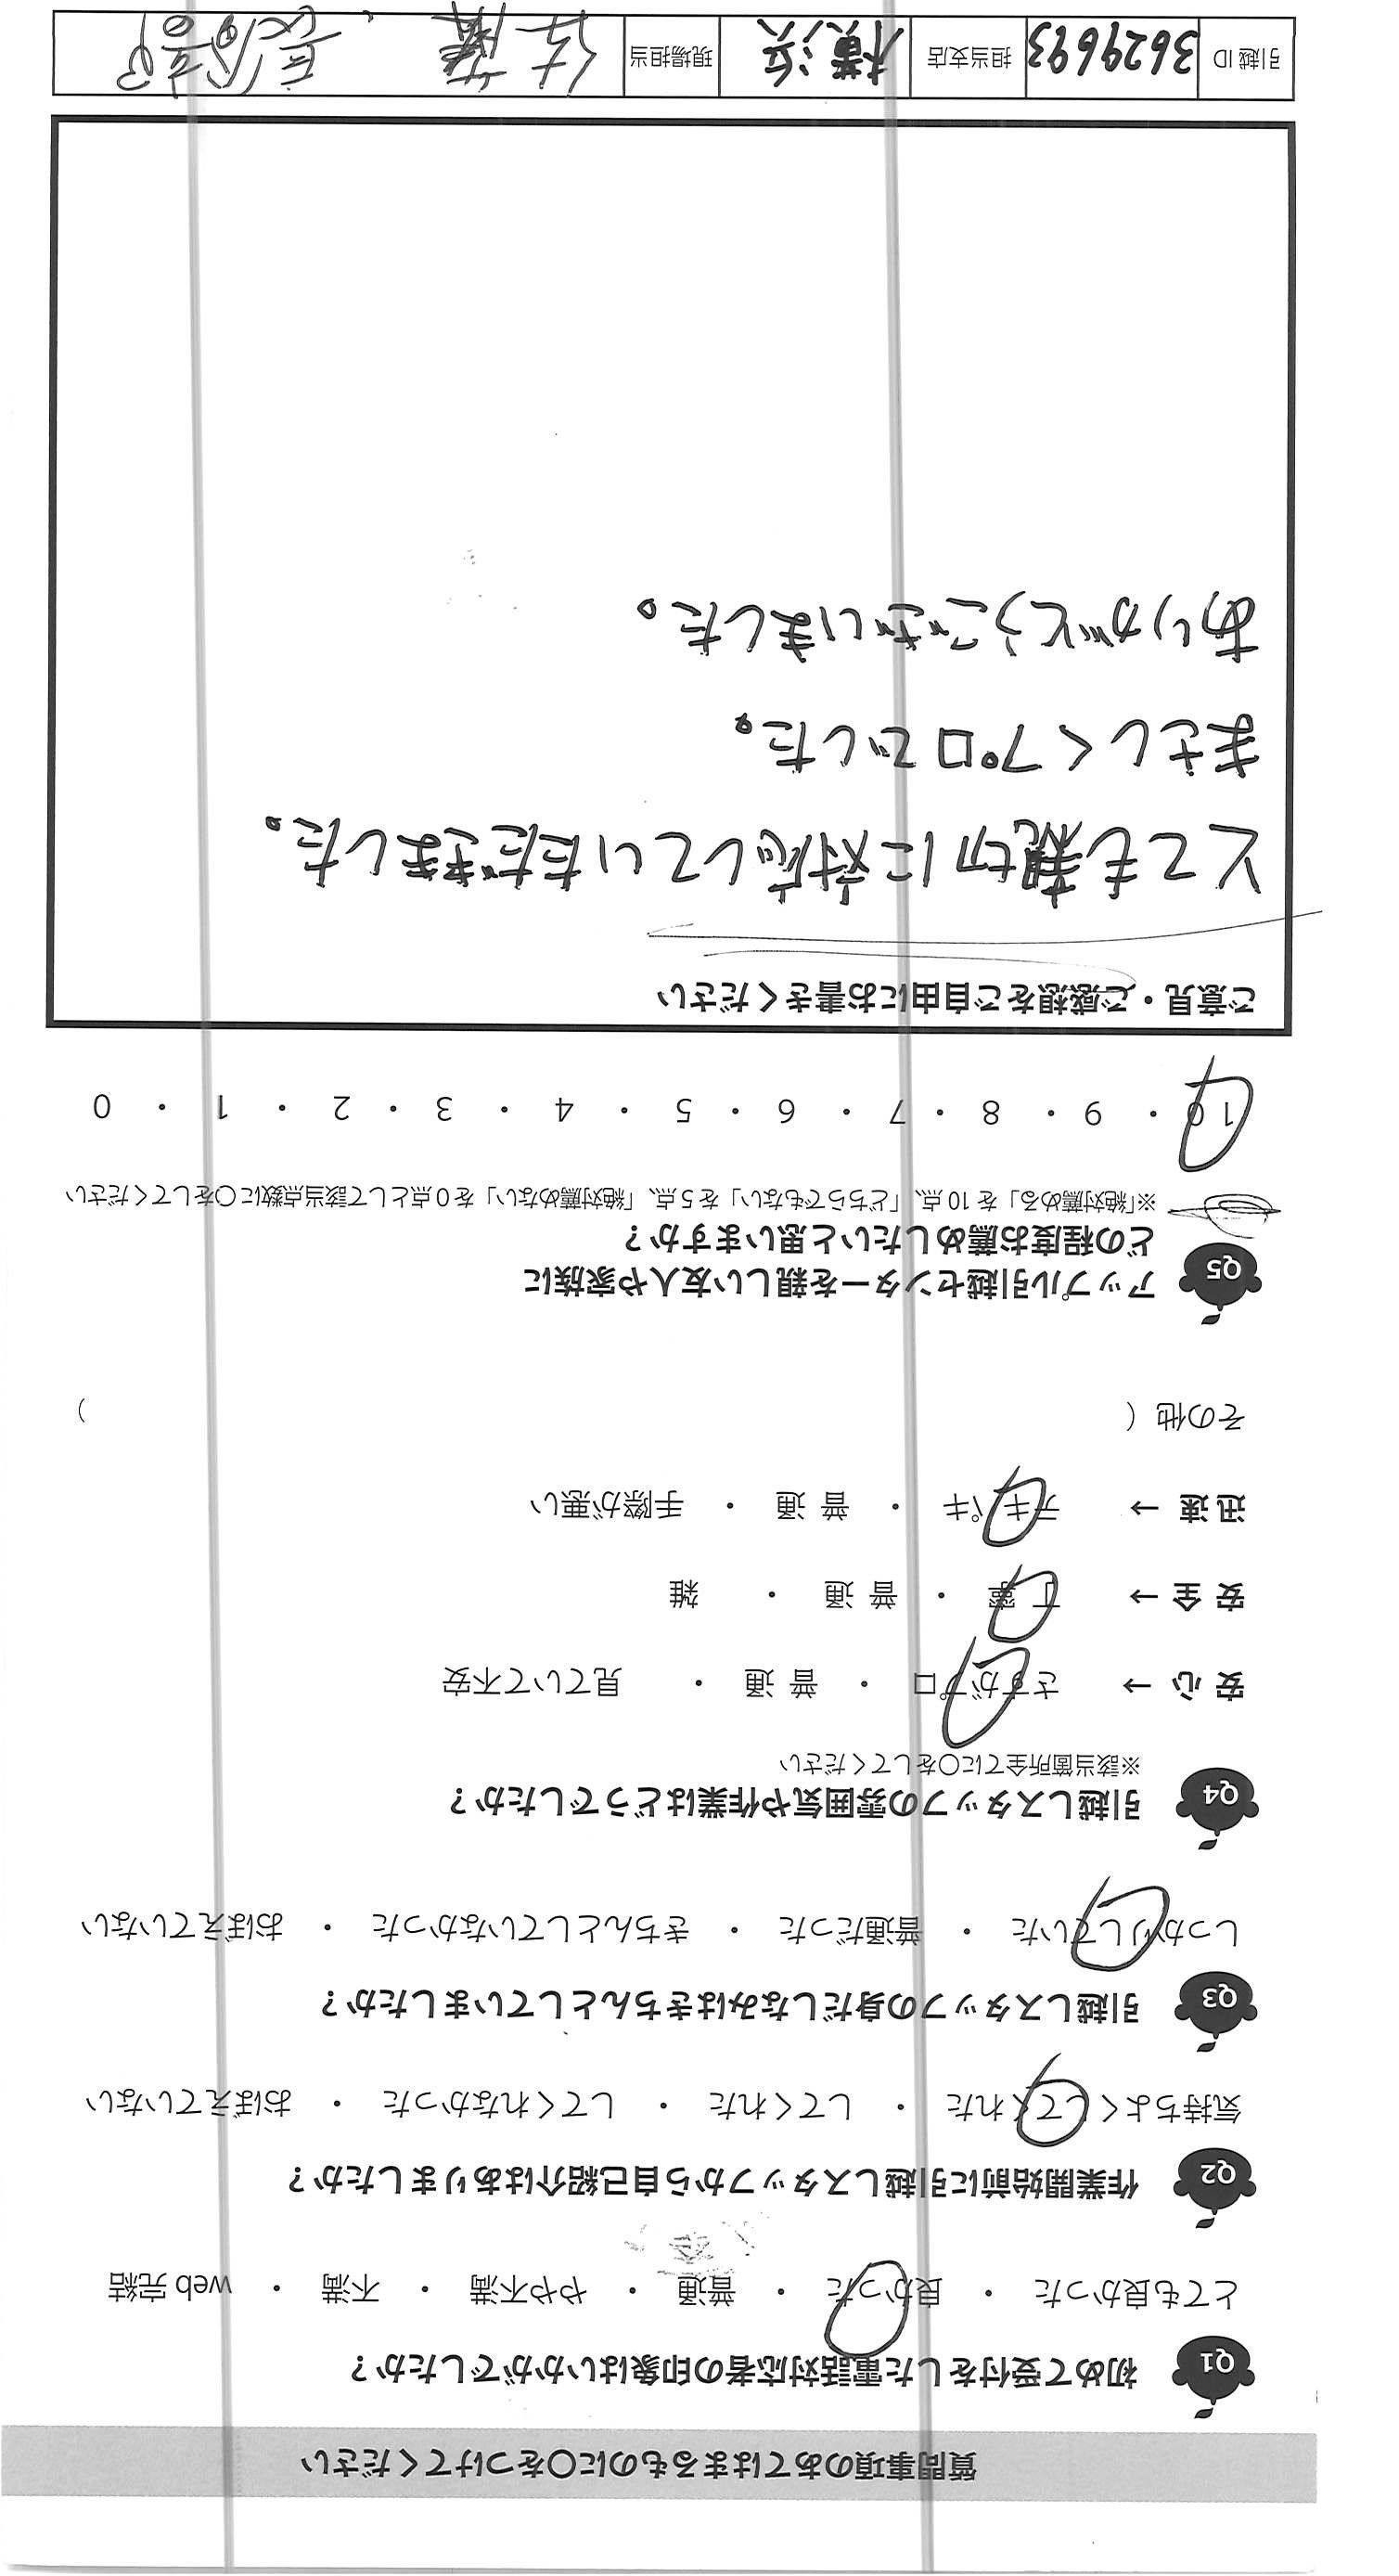 質問事項のあてはまるものに○をつけてください
Q1 初めて受付をした電話対応者の印象はいかがでしたか？
とても良かった ・ 良かった ・ 普通 ・ やや不満 ・ 不満 ・ web 完結
Q2 作業開始前に引越しスタッフから自己紹介はありましたか？
気持ちよくしてくれた ・ してくれた ・ してくれなかった ・ おぼえていない
Q3 引越しスタッフの身だしなみはきちんとしていましたか？
しっかりしていた ・ 普通だった ・ きちんとしていなかった ・ おぼえていない
Q4 引越しスタッフの雰囲気や作業はどうでしたか？
※該当箇所全てに○をしてください
安 心 → さすがプロ ・ 普 通 ・ 見ていて不安
安 全 → 丁寧 ・ 普 通 ・ 雑
迅 速 → テキパキ ・ 普 通 ・ 手際が悪い
その他（ ）
Q5 アップル引越センターを親しい友人や家族に
どの程度お薦めしたいと思いますか？
※「絶対薦める」を 10 点、「どちらでもない」を 5 点、「絶対薦めない」を 0 点として該当点数に○をしてください
10 ・ 9 ・ 8 ・ 7 ・ 6 ・ 5 ・ 4 ・ 3 ・ 2 ・ 1 ・ 0
ご意見・ご感想をご自由にお書きください
とても親切に対応していただきました。
まさしくプロでした。
ありがとうございました。
引越 ID 3629693 担当支店 横浜 現場担当 佐藤、長谷部